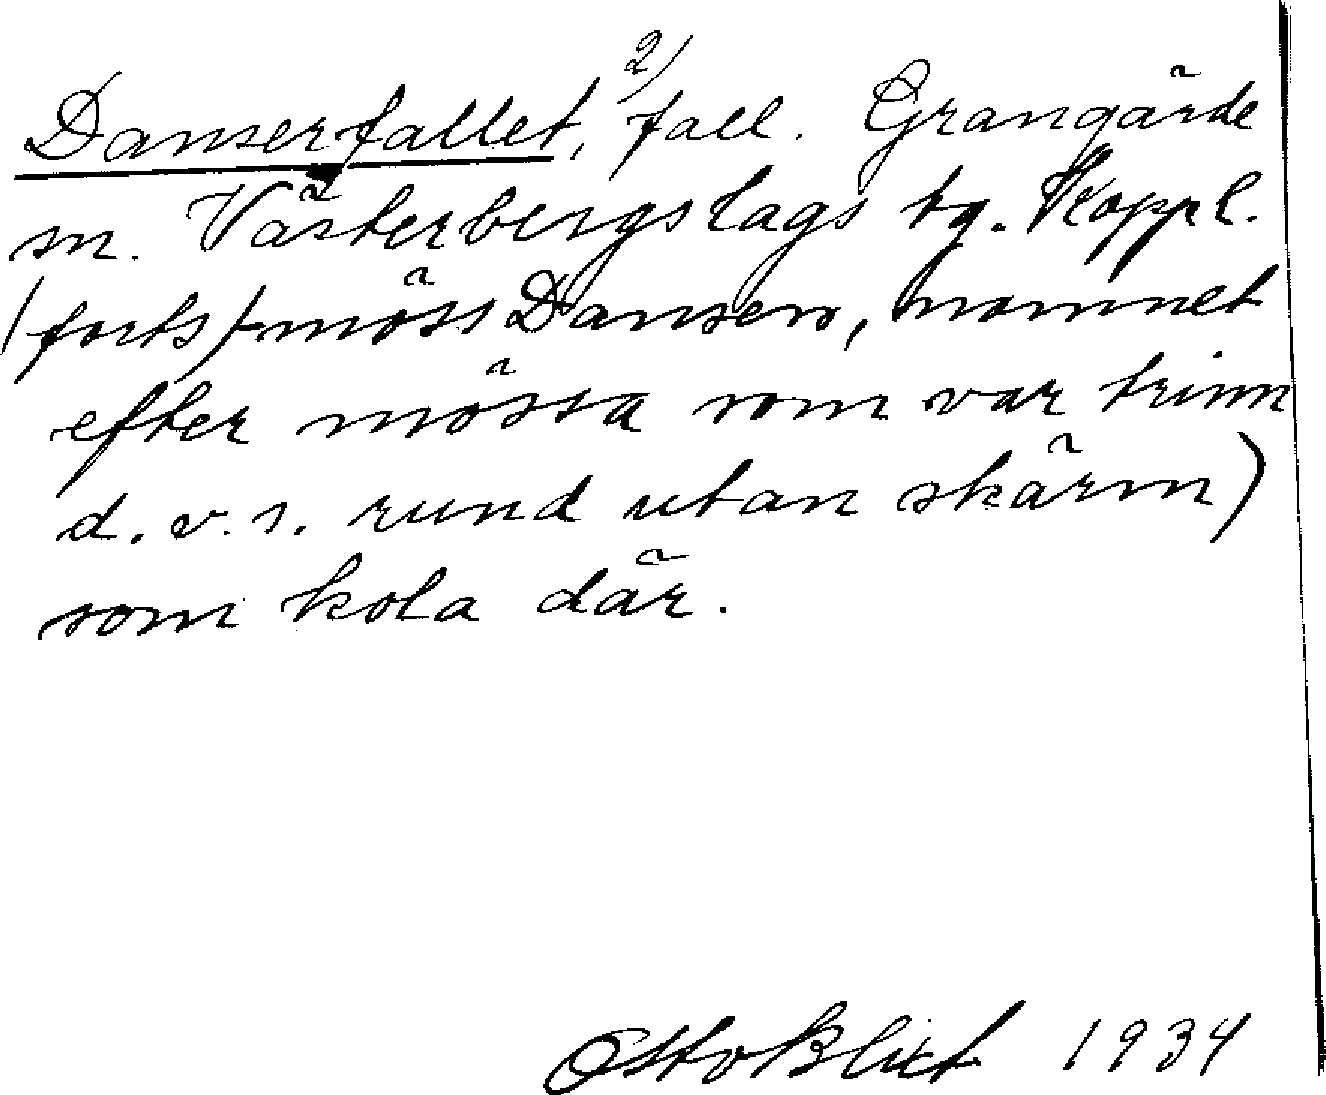 Danserfallet, 2) fall. Grangärde
sn. Västerbergslags tg. Koppl.
(forts) möss Dansen, namnet
efter mössa som var trinn
d.v.s. rund utan skärm)
som kola där.
Otto Blixt 1934